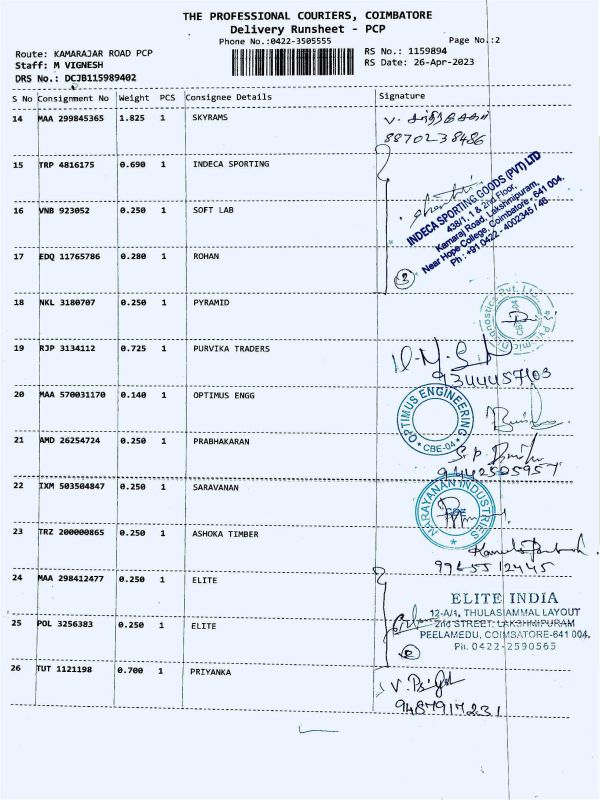 THE PROFESSIONAL COURIERS, COIMBATORE
Delivery Runsheet - PCP
Phone No.:0422-3505555 Page No.:2
Route: KAMARAJAR ROAD PCP RS No.: 1159894
Staff: M VIGNESH RS Date: 26-Apr-2023
DRS No.: DCJB115989402
S No Consignment No Weight PCS Consignee Details Signature
14 MAA 299845365 1.825 1 SKYRAMS
8870238486
15 TRP 4816175 0.690 1 INDECA SPORTING
INDECA SPORTING GOODS (PVT) LTD
438/1, 1 & 2nd Floor,
Kamaraj Road, Lakshmipuram,
Near Hope College, Coimbatore - 641 004.
Ph : +91 0422 - 4002345 / 46
16 VNB 923052 0.250 1 SOFT LAB
17 EDQ 11765786 0.280 1 ROHAN
3
18 NKL 3180707 0.250 1 PYRAMID
CBE-04
19 RJP 3134112 0.725 1 PURVIKA TRADERS
20 MAA 570031170 0.140 1 OPTIMUS ENGG
OPTIMUS ENGINEERING
* CBE-04 *
21 AMD 26254724 0.250 1 PRABHAKARAN
22 IXM 503504847 0.250 1 SARAVANAN
NARAYANAN INDUSTRIES
23 TRZ 200000865 0.250 1 ASHOKA TIMBER
9965512445
24 MAA 298412477 0.250 1 ELITE
ELITE INDIA
12-A/1, THULASIAMMAL LAYOUT
2nd STREET, LAKSHMIPURAM
PEELAMEDU, COIMBATORE-641 004.
Ph: 0422-2590565
25 POL 3256383 0.250 1 ELITE
26 TUT 1121198 0.700 1 PRIYANKA
9487917231